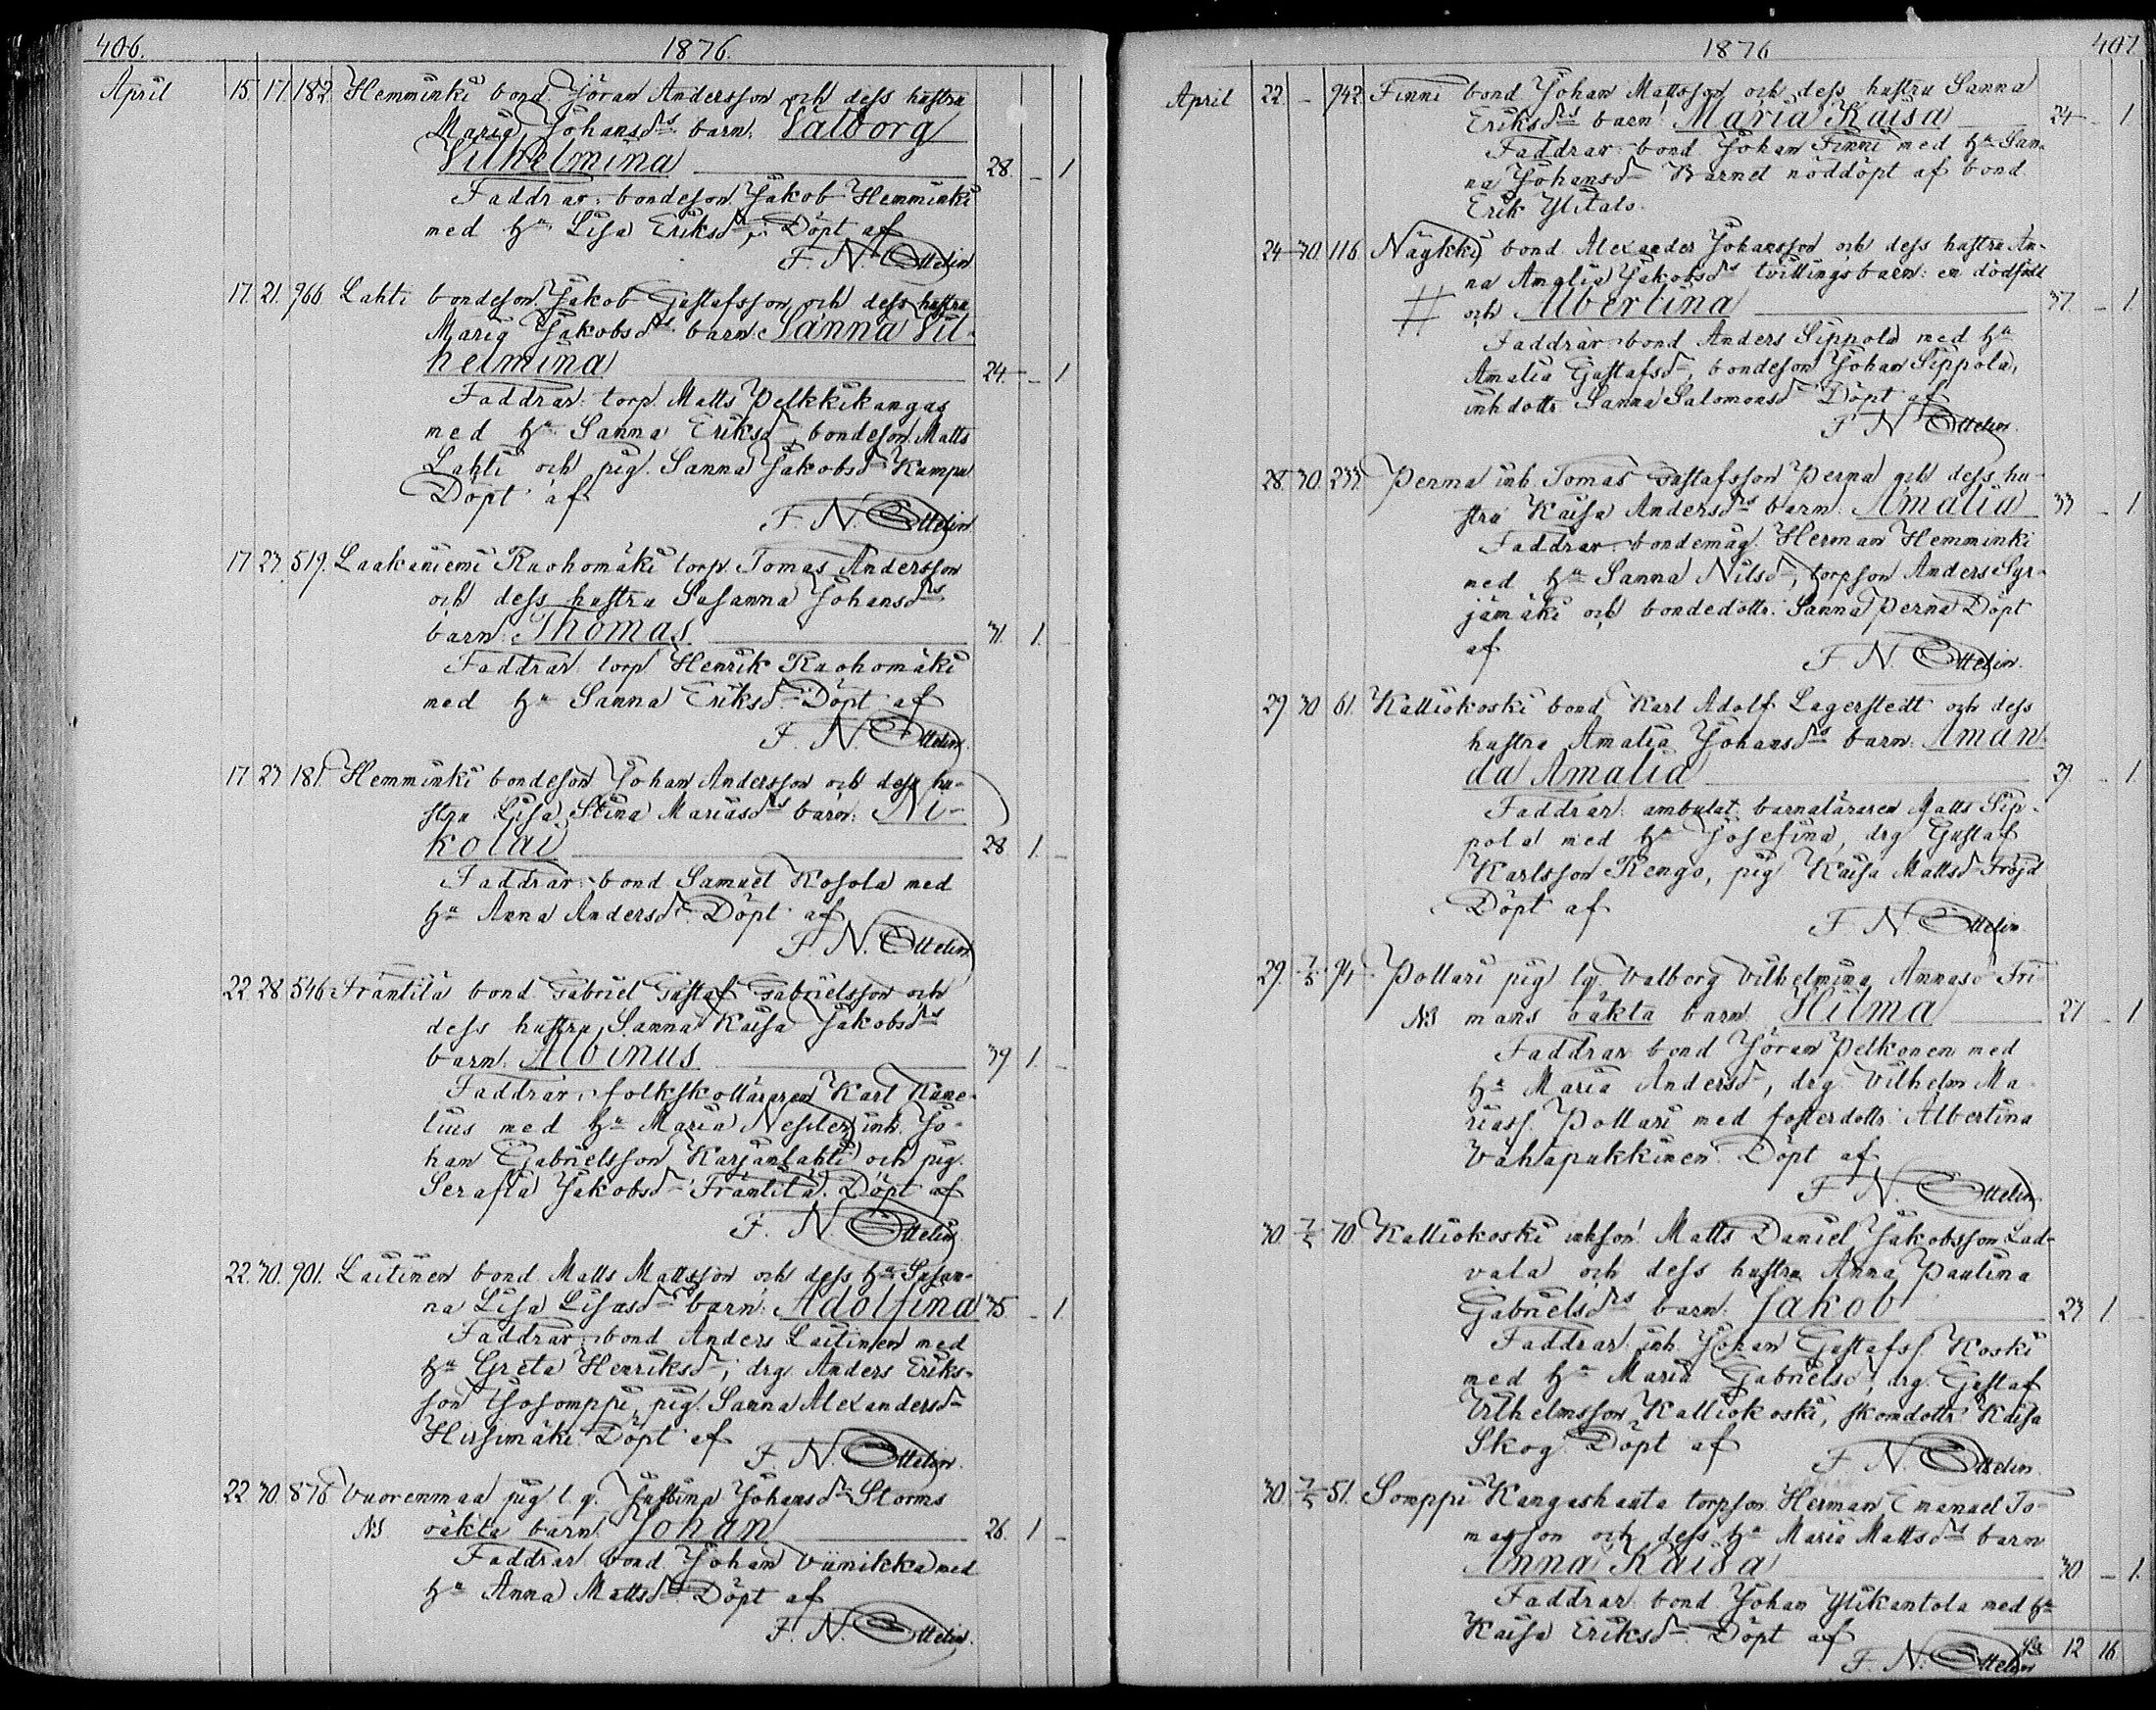 406. 1876.
April 15. 17. 182. Hemminki bond. Jöran Andersson och dess hustru
Maria Johansdrs barn: Valborg
Vilhelmina 28. – 1
Faddrar: bondeson Jakob Hemminki
med hu Lisa Eriksdr. Döpt af
F. N. Ottelin
17. 21. 966 Lahti bondeson Jakob Gustafsson och dess hustru
Maria Jakobsdrs barn: Sanna Vil-
helmina 24. – 1
Faddrar: torp. Matts Pelkkikangas
med hu Sanna Eriksdr, bondeson Matts
Lahti och pig. Sanna Jakobsdr Kampu
Döpt af
F. N. Ottelin
17 23. 519. Laakaniemi Ruohomäki torp. Tomas Andersson
och dess hustru Susanna Johansdrs
barn: Thomas 31. 1.
Faddrar torp. Henrik Ruohomäki
med hu Sanna Eriksdr. Döpt af
F. N. Ottelin
17 23 181 Hemminki bondeson Johan Andersson och dess hu-
stru Lisa Stina Mariasdrs barn: Ni-
kolai 28. 1. –
Faddrar: bond Samuel Kosola med
hu Anna Andersdr. Döpt af
F. N. Ottelin
22 28. 546 Fräntilä bond Gabriel Gustaf Gabrielsson och
dess hustru Sanna Kaisa Jakobsdrs
barn: Albinus 39 1. –
Faddrar: folkskolläraren Karl Kane-
lius med hu Maria Nessler, inh. Jo-
han Gabrielsson Karjanlahti och pig.
Serafia Jakobsdr Fräntilä. Döpt af
F. N. Ottelin
22. 30. 901. Laitinen bond. Matts Mattsson och dess hu Susan-
na Lisa Lisasdrs barn: Adolfina 35. – 1.
Faddrar: bond Anders Laitinen med
hu Greta Henriksdr; drg. Anders Eriks-
son Isosomppi, pig. Sanna Alexandersdr
Hirsimäki. Döpt af
F. N. Ottelin.
22. 30. 876 Vuorenmaa pig. l. q. Justina Johansdr Storms
NB oäkta barn: Johan 26. 1 –
Faddrar bond Johan Viinikka med
hu Anna Mattsdr. Döpt af
F. N. Ottelin.
1876 407
April 22. – 942. Finni bond Johan Mattsson och dess hustru Sanna
Eriksdrs barn: Maria Kaisa 24 – 1
Faddrar: bond Johan Finni med hu San-
na Johansdr Barnet nöddöpt af bond
Erik Ylitalo.
24 30. 116. Näykki bond Alexander Johansson och dess hustru An-
na Amalia Jakobsdrs tvillingsbarn: en dödfödd
# och Albertina 37. – 1.
Faddrar bond Anders Sippola med hu
Amalia Gustafsdr, bondeson Johan Sippola,
inhdottr Sanna Salomonsdr Döpt af
F N Ottelin.
28. 30. 233. Perna inh. Tomas Gustafsson Perna och dess hu-
stru Kaisa Andersdrs barn: Amalia 33 – 1
Faddrar: bondemåg. Herman Hemminki
med hu Sanna Nilsdr, torpson Anders Syr-
jämäki och bondedottr. Sanna Perna Döpt
af
F N. Ottelin.
29 30 61. Kalliokoski bond Karl Adolf Lagerstedt och dess
hustru Amalia Johansdrs barn: Aman-
da Amalia 29 – 1
Faddrar: ambulat. barnaläraren Matts Sip-
pola med hu Josefina, drg Gustaf
Karlsson Rengo, pig Kaisa Mattsdr Fröjd
Döpt af
F N. Ottelin
29. 7/5 94. Pollari pig lq. Valborg Vilhelmina Annasdr Fri-
NB mans oäkta barn Hilma 27 – 1
Faddrar bond Jöran Pelkonen med
hu Maria Andersdr, drg. Vilhelm Ma-
riass. Pollari med fosterdottr. Albertina
Vähäpukkinen. Döpt af
F N. Ottelin
30. 7/5 70. Kalliokoski inhson Matts Daniel Jakobsson Lad-
vala och dess hustru Anna Paulina
Gabrielsdrs barn: Jakob 23 1 –
Faddrar: inh Johan Gustafss. Koski
med hu Maria Gabrielsdr, drg. Gustaf
Vilhelmsson Kalliokoski, skomdottr Kaisa
Skog. Döpt af
F N. Ottelin
30. 7/5 51. Somppi Kangashauta torpson Herman Emanuel To-
masson och dess hu Maria Mattsdrs barn
Anna Kaisa 30 – 1.
Faddrar: bond Johan Ylikantola med hu
Kaisa Eriksdr. Döpt af
F. N. Ottelin 12 16